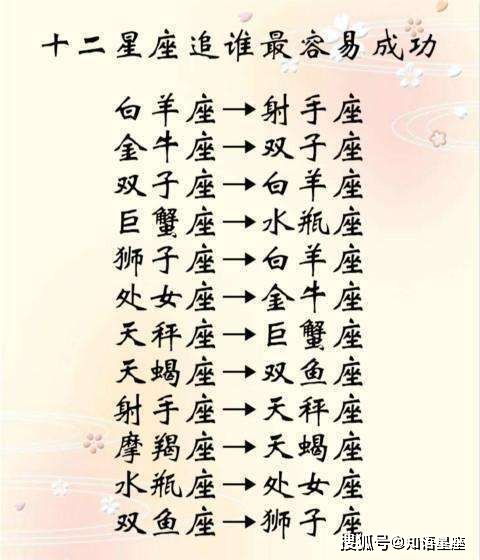 十二星座追谁最容易成功
白羊座→射手座
金牛座→双子座
双子座→白羊座
巨蟹座→水瓶座
狮子座→白羊座
处女座→金牛座
天秤座→巨蟹座
天蝎座→双鱼座
射手座→天秤座
摩羯座→天蝎座
水瓶座→处女座
双鱼座→狮子座
搜狐号@知语星座